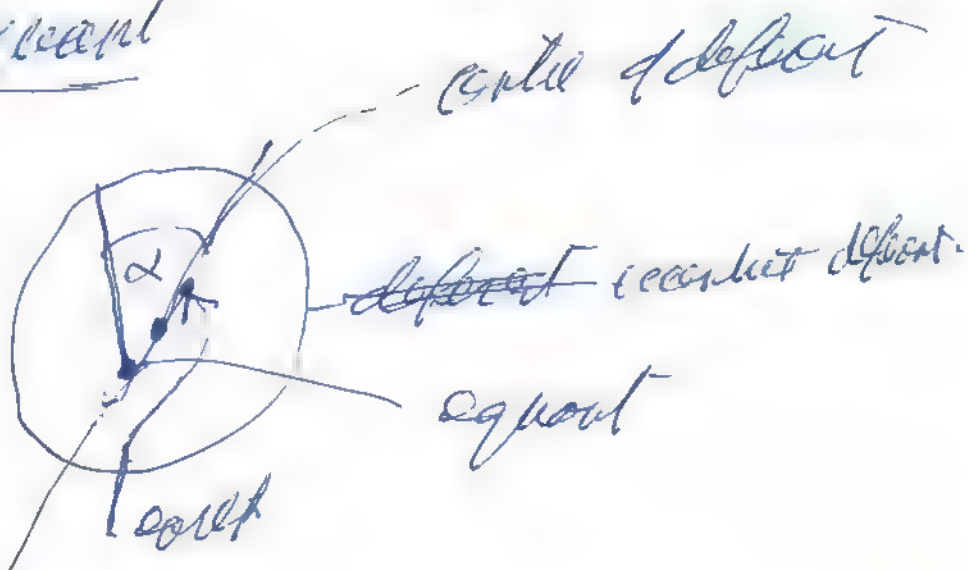 centre of deferent
α
deferent eccentric deferent.
equant
earth